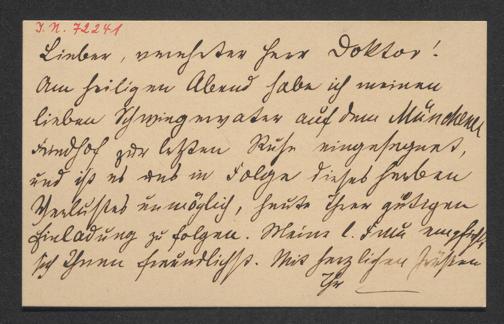 I. N. 72241
Lieber, verehrter Herr Doktor!
Am heiligen Abend habe ich meinen
lieben Schwiegervater auf dem Münchener
Friedhof zur letzten Ruhe eingesegnet,
und ist es uns in Folge dieses herben
Verlustes unmöglich, heute Ihrer gütigen
Einladung zu folgen. Meine l. Frau empfiehlt
sich Ihnen freundlichst. Mit herzlichen Grüßen
Ihr